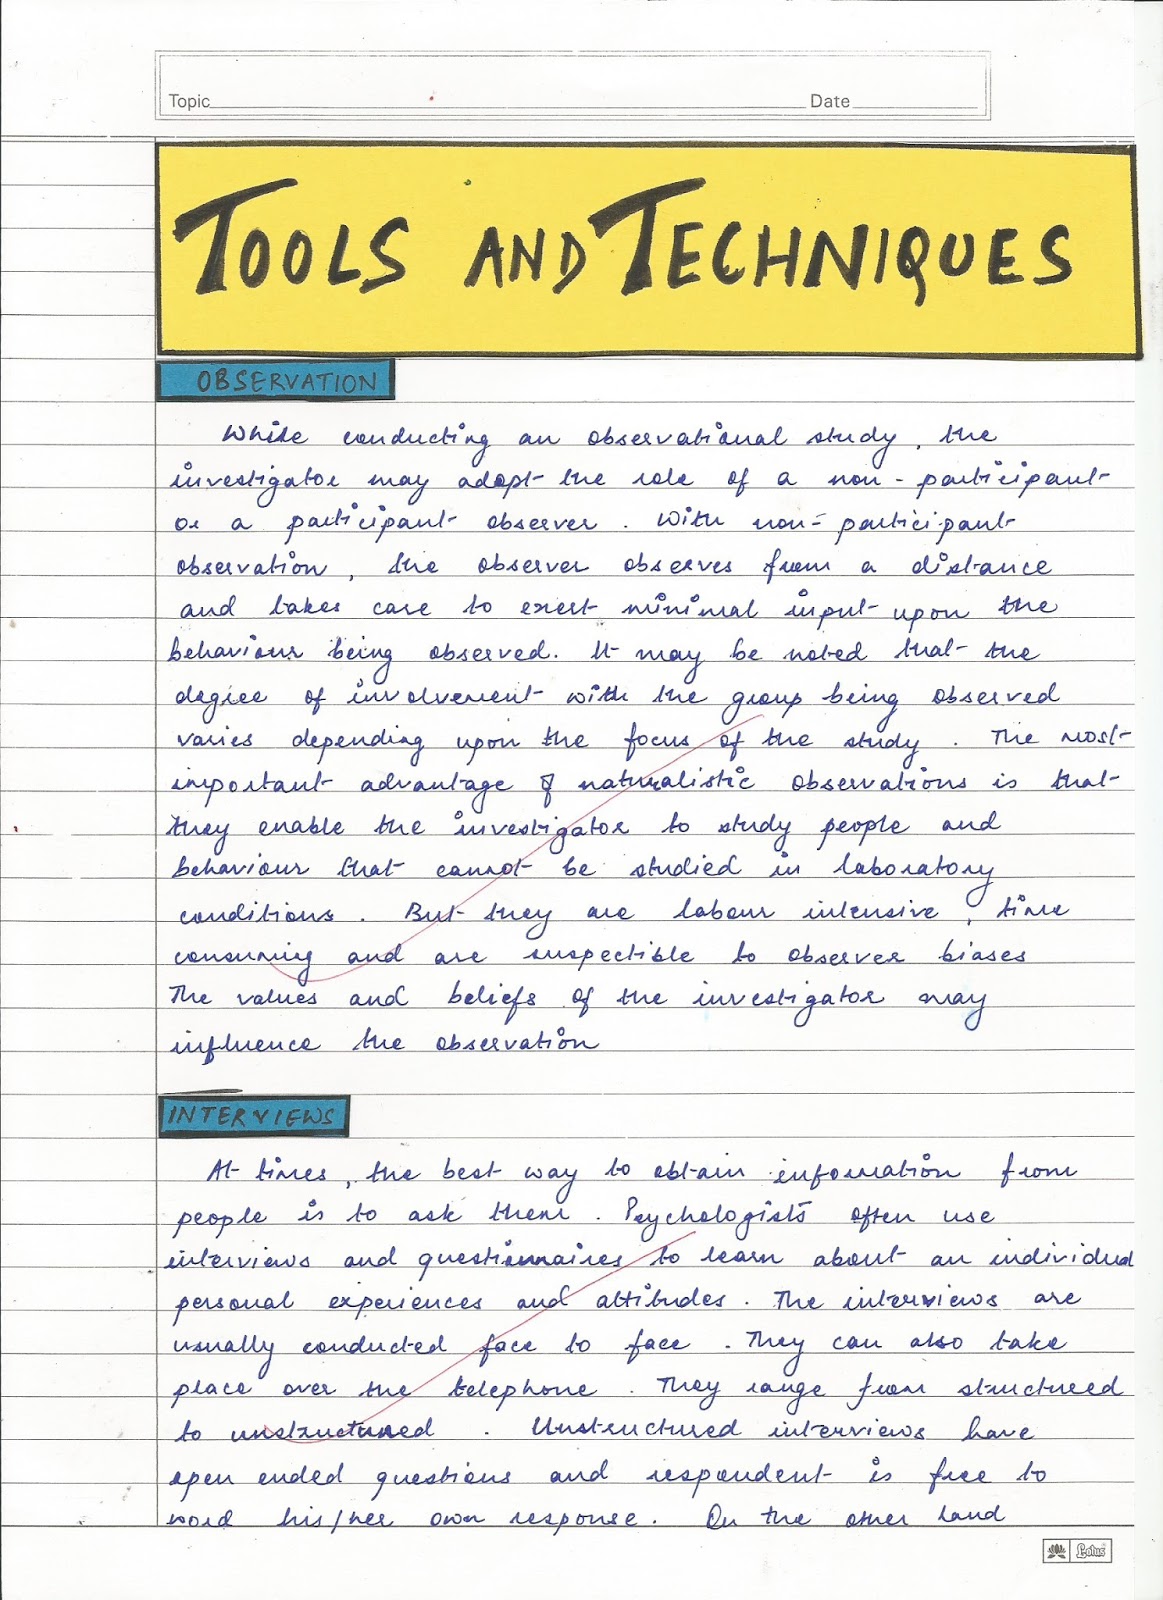 Topic Date
TOOLS AND TECHNIQUES
OBSERVATION
While conducting an observational study, the
investigator may adopt the role of a non-participant
or a participant observer. With non-participant
observation, the observer observes from a distance
and takes care to exert minimal input upon the
behaviour being observed. It may be noted that the
degree of involvement with the group being observed
varies depending upon the focus of the study. The most
important advantage of naturalistic observations is that
they enable the investigator to study people and
behaviour that cannot be studied in laboratory
conditions. But they are labour intensive, time
consuming and are suspectible to observer biases
The values and beliefs of the investigator may
influence the observation
INTERVIEWS
At times, the best way to obtain information from
people is to ask them. Psychologists often use
interviews and questionnaires to learn about an individual
personal experiences and attitudes. The interviews are
usually conducted face to face. They can also take
place over the telephone. They range from structured
to unstructured. Unstructured interviews have
open ended questions and respondent is free to
word his/her own response. On the other hand
Lotus